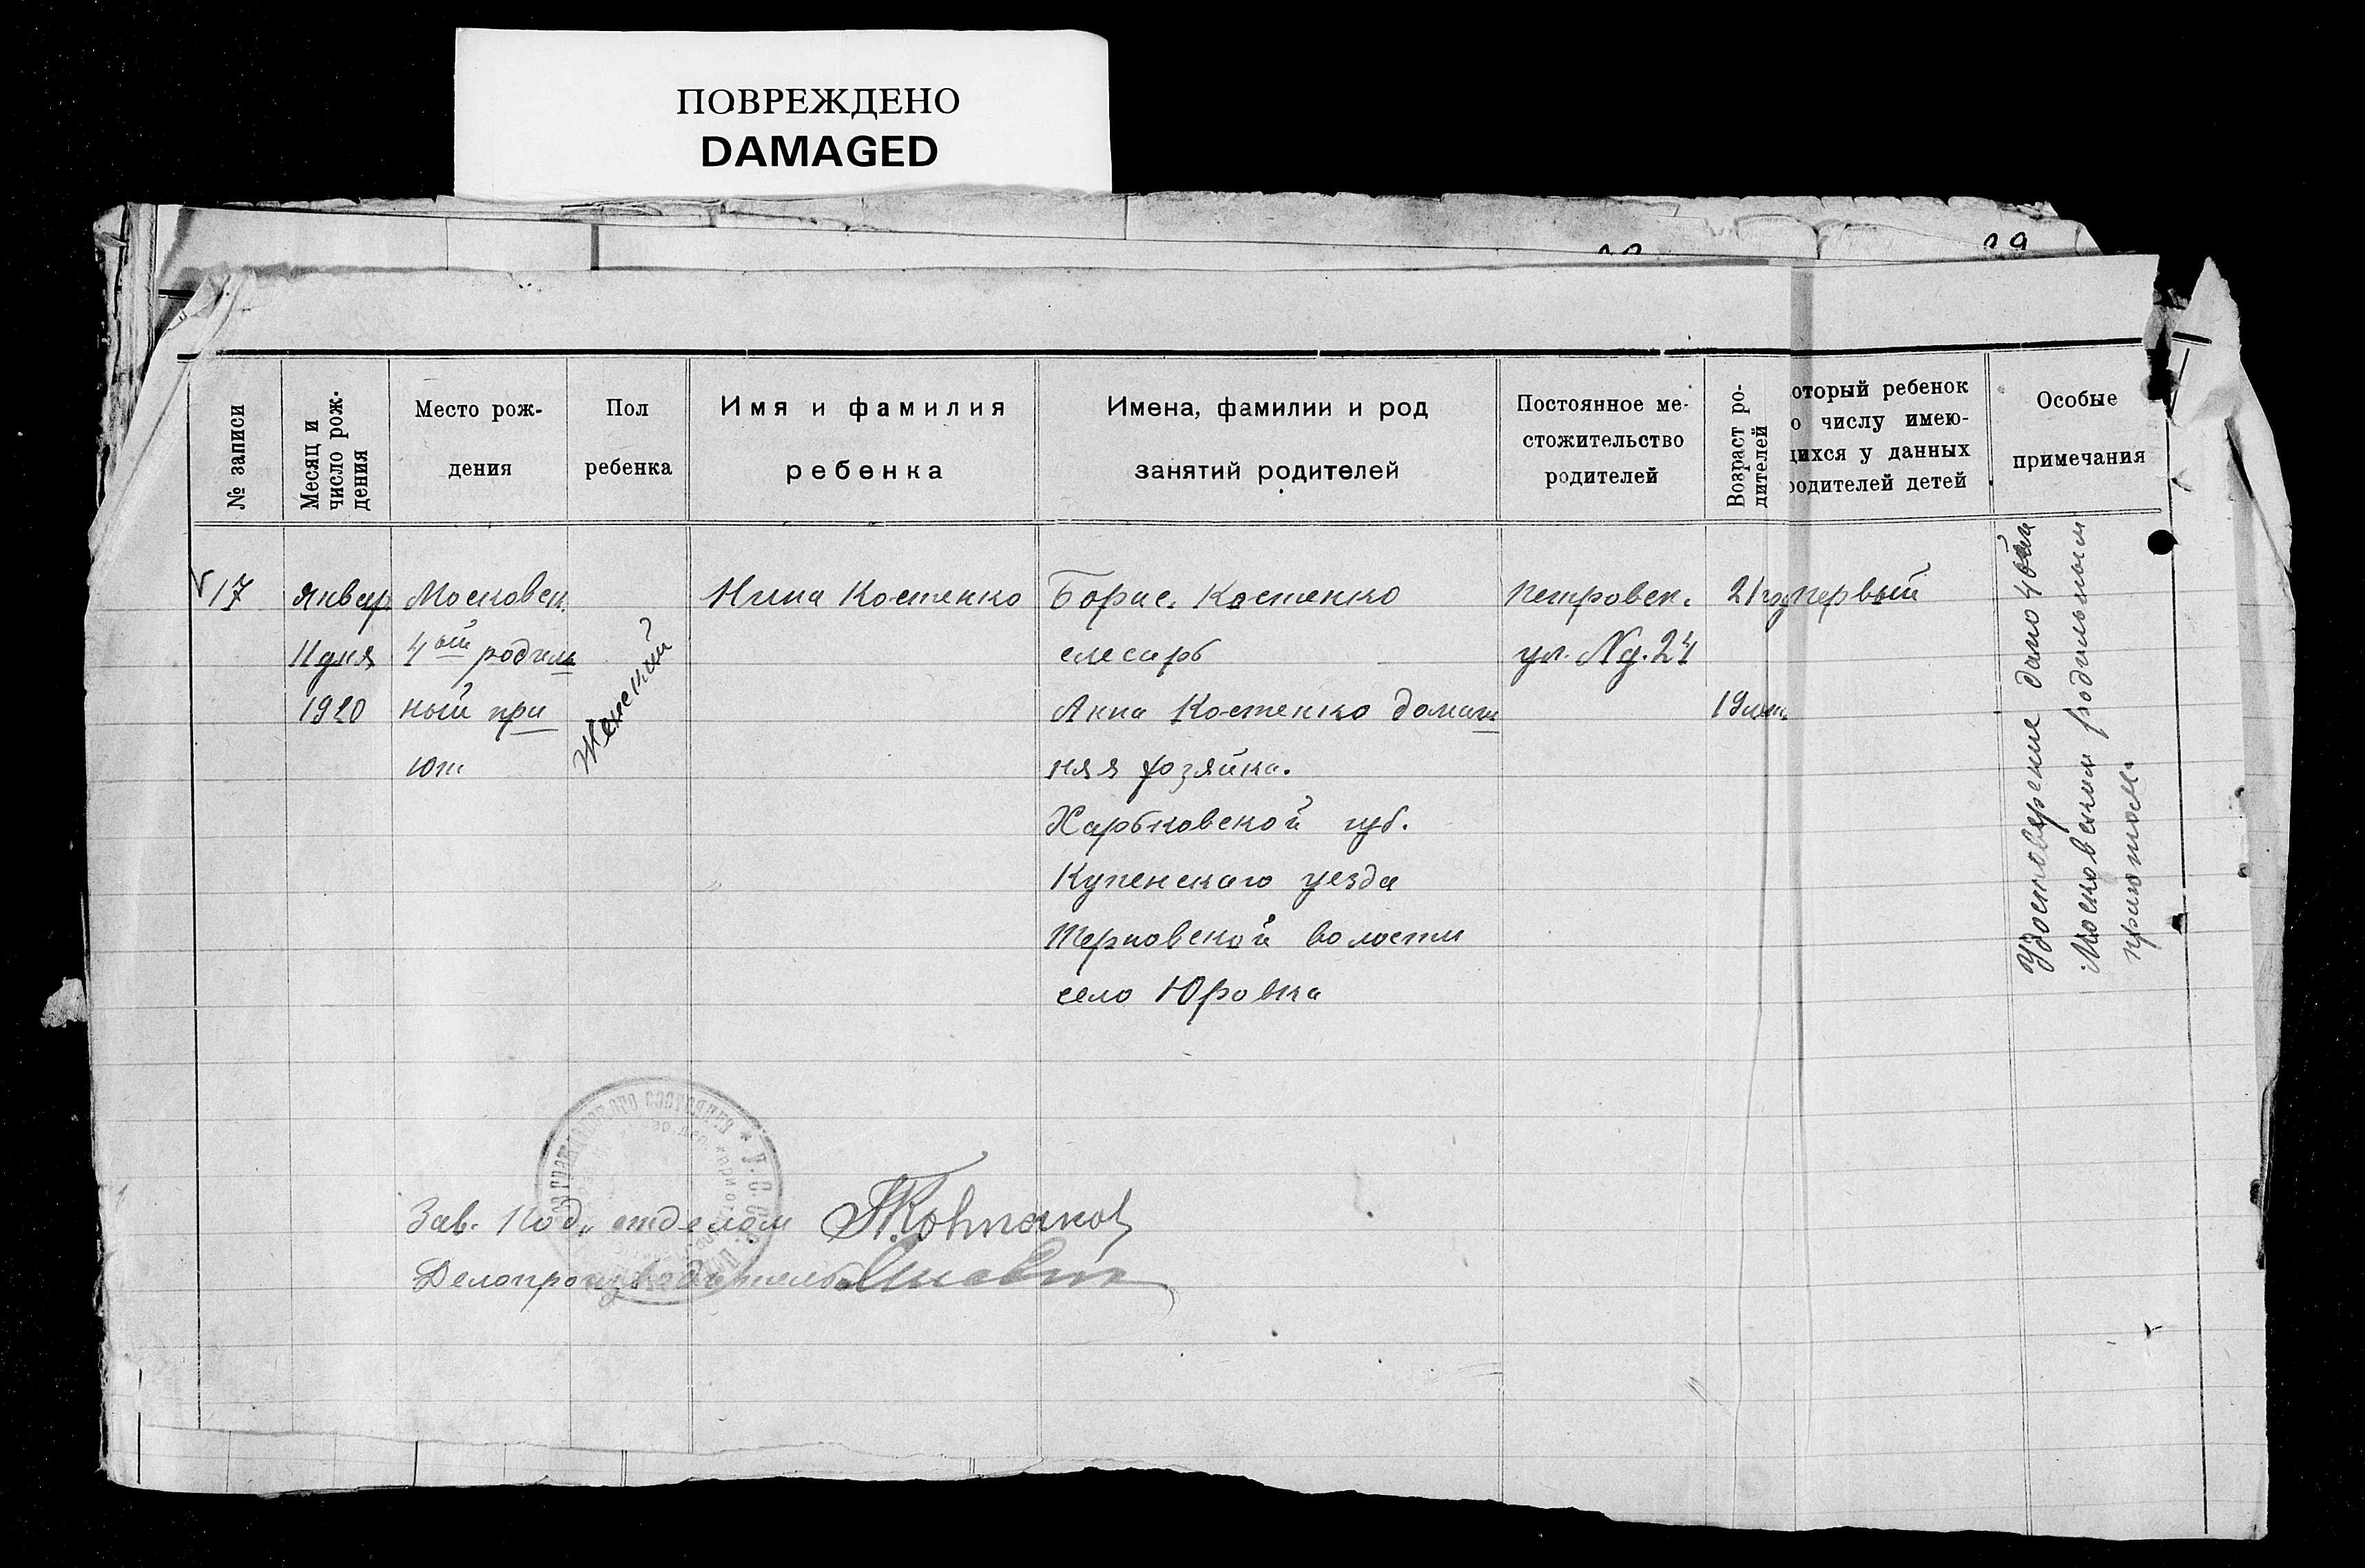 ПОВРЕЖДЕНО
DAMAGED
№ записи
Месяц и
число рож-
дения
Место рож-
дения
Пол
ребенка
Имя и фамилия
ребенка
Имена, фамилии и род
занятий родителей
Постоянное ме-
стожительство
родителей
Возраст ро-
дителей
оторый ребенок
о числу имею-
щихся у данных
родителей детей
Особые
примечания
17
Январ
11 дня
1920
Московск.
4ый родиль
ный при
ют
Женский
Нина Костенко
Борис. Костенко
слесарь
Анна Костенко домаш
няя хозяйка.
Харьковской губ.
Купенскаго уезда
Терновской волости
село Юровка
Петровск.
ул. № д. 24
21 год
19 лет
первый
Удостоверение дано 4ым
Московским родильным
приютом.
Зав. Под. отделом
Делопроизводитель